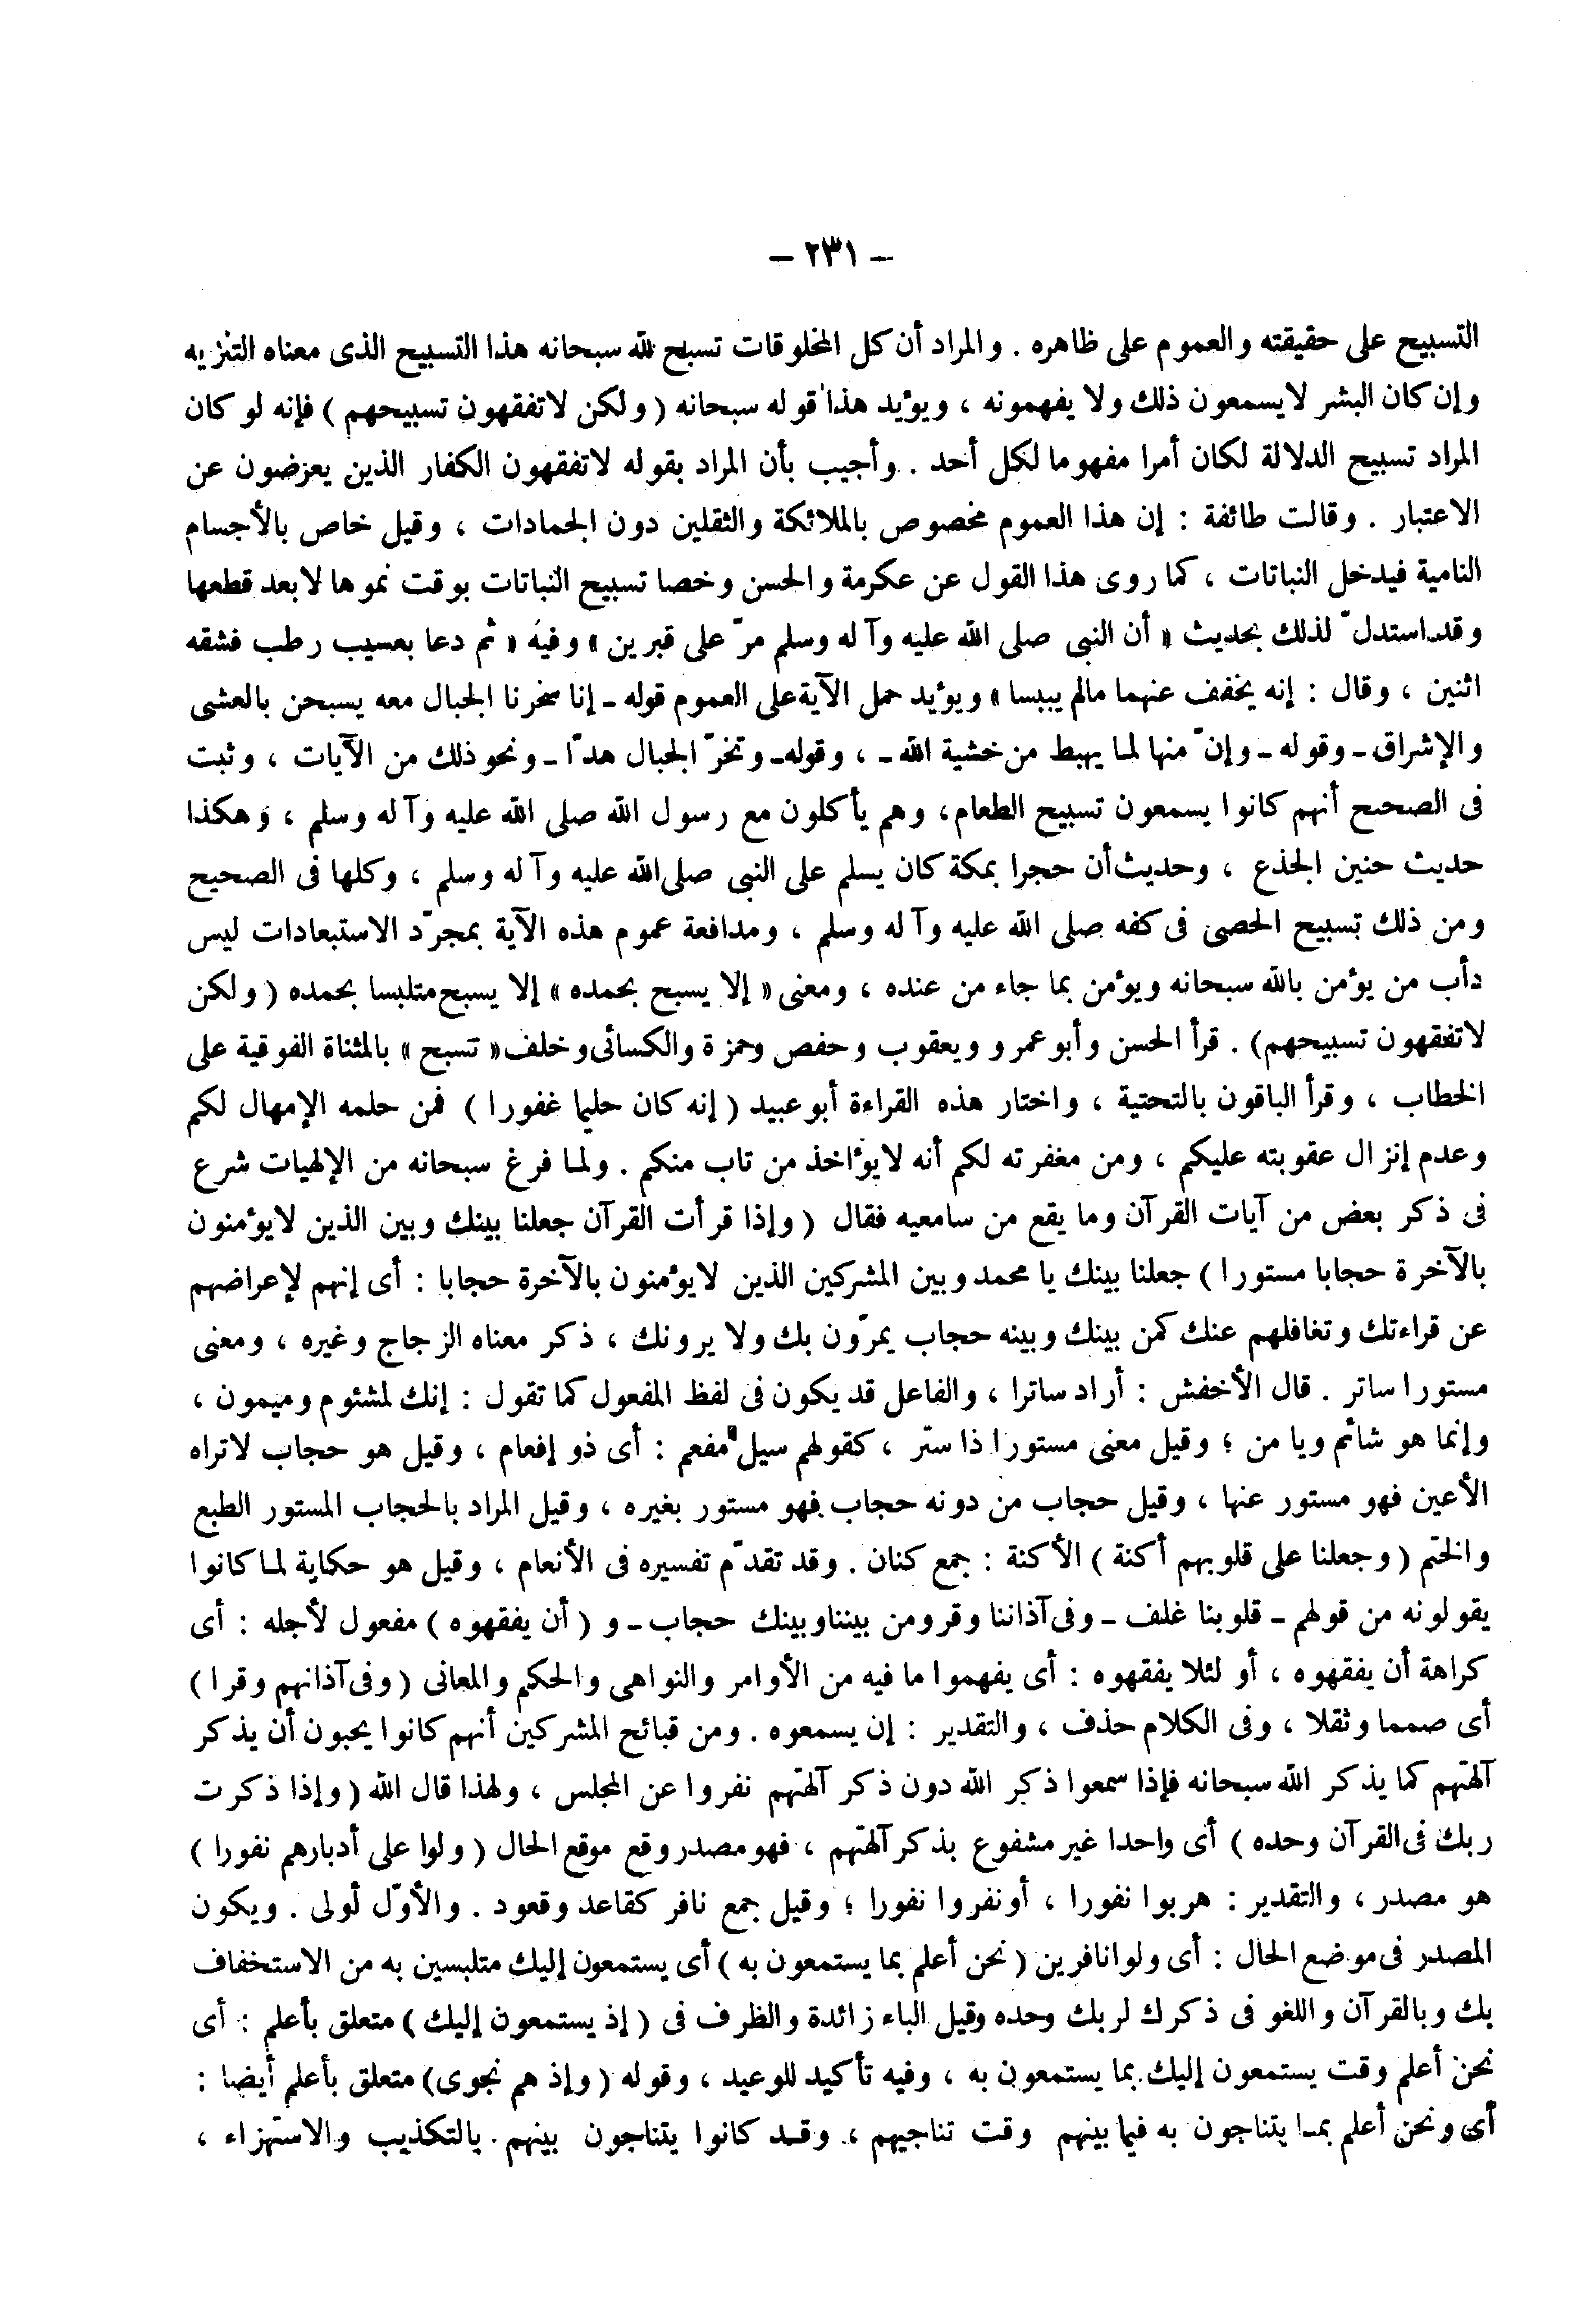 – ٢٣١ –
التسبيح على حقيقته والعموم على ظاهره . والمراد أن كل المخلوقات تسبح لله سبحانه هذا التسبيح الذى معناه التنزيه
وإن كان البشر لا يسمعون ذلك ولا يفهمونه ، ويؤيد هذا قوله سبحانه ( ولكن لا تفقهون تسبيحهم ) فإنه لو كان
المراد تسبيح الدلالة لكان أمرا مفهوما لكل أحد . وأجيب بأن المراد بقوله لا تفقهون الكفار الذين يعرضون عن
الاعتبار . وقالت طائفة : إن هذا العموم مخصوص بالملائكة والثقلين دون الجمادات ، وقيل خاص بالأجسام
النامية فيدخل النباتات ، كما روى هذا القول عن عكرمة والحسن وخصا تسبيح النباتات بوقت نموها لا بعد قطعها
وقد استدلّ لذلك بحديث « أن النبى صلى الله عليه وآله وسلم مرّ على قبرين » وفيه « ثم دعا بعسيب رطب فشقه
اثنين ، وقال : إنه يخفف عنهما مالم ييبسا » ويؤيد حمل الآية على العموم قوله ـ إنا سخرنا الجبال معه يسبحن بالعشى
والإشراق ـ وقوله ـ وإنّ منها لما يهبط من خشية الله ـ ، وقوله ـ وتخرّ الجبال هدّا ـ ونحو ذلك من الآيات ، وثبت
فى الصحيح أنهم كانوا يسمعون تسبيح الطعام، وهم يأكلون مع رسول الله صلى الله عليه وآله وسلم ، وهكذا
حديث حنين الجذع ، وحديث أن حجرا بمكة كان يسلم على النبى صلى الله عليه وآله وسلم ، وكلها فى الصحيح
ومن ذلك تسبيح الحصى فى كفه صلى الله عليه وآله وسلم ، ومدافعة عموم هذه الآية بمجرّد الاستبعادات ليس
دأب من يؤمن بالله سبحانه ويؤمن بما جاء من عنده ، ومعنى « إلا يسبح بحمده » إلا يسبح متلبسا بحمده ( ولكن
لا تفقهون تسبيحهم) . قرأ الحسن وأبو عمرو ويعقوب وحفص وحمزة والكسائى وخلف « تسبح » بالمثناة الفوقية على
الخطاب ، وقرأ الباقون بالتحتية ، واختار هذه القراءة أبو عبيد ( إنه كان حليما غفورا ) فمن حلمه الإمهال لكم
وعدم إنزال عقوبته عليكم ، ومن مغفرته لكم أنه لا يؤاخذ من تاب منكم . ولما فرغ سبحانه من الإلهيات شرع
فى ذكر بعض من آيات القرآن وما يقع من سامعيه فقال ( وإذا قرأت القرآن جعلنا بينك وبين الذين لا يؤمنون
بالآخرة حجابا مستورا ) جعلنا بينك يا محمد وبين المشركين الذين لا يؤمنون بالآخرة حجابا : أى إنهم لإعراضهم
عن قراءتك وتغافلهم عنك كمن بينك وبينه حجاب يمرّون بك ولا يرونك ، ذكر معناه الزجاج وغيره ، ومعنى
مستورا ساتر . قال الأخفش : أراد ساترا ، والفاعل قد يكون فى لفظ المفعول كما تقول : إنك لمشئوم وميمون ،
وإنما هو شائم ويامن ؛ وقيل معنى مستورا ذا ستر ، كقولهم سيل مفعم : أى ذو إفعام ، وقيل هو حجاب لا تراه
الأعين فهو مستور عنها ، وقيل حجاب من دونه حجاب فهو مستور بغيره ، وقيل المراد بالحجاب المستور الطبع
والختم ( وجعلنا على قلوبهم أكنة ) الأكنة : جمع كنان . وقد تقدّم تفسيره فى الأنعام ، وقيل هو حكاية لما كانوا
يقولونه من قولهم ـ قلوبنا غلف ـ وفى آذاننا وقر ومن بيننا وبينك حجاب ـ و ( أن يفقهوه ) مفعول لأجله : أى
كراهة أن يفقهوه ، أو لئلا يفقهوه : أى يفهموا ما فيه من الأوامر والنواهى والحكم والمعانى ( وفى آذانهم وقرا )
أى صمما وثقلا ، وفى الكلام حذف ، والتقدير : إن يسمعوه . ومن قبائح المشركين أنهم كانوا يحبون أن يذكر
آلهتهم كما يذكر الله سبحانه فإذا سمعوا ذكر الله دون ذكر آلهتهم نفروا عن المجلس ، ولهذا قال الله ( وإذا ذكرت
ربك فى القرآن وحده ) أى واحدا غير مشفوع بذكر آلهتهم ، فهو مصدر وقع موقع الحال ( ولوا على أدبارهم نفورا )
هو مصدر ، والتقدير : هربوا نفورا ، أو نفروا نفورا ؛ وقيل جمع نافر كقاعد وقعود . والأوّل أولى . ويكون
المصدر فى موضع الحال : أى ولوا نافرين ( نحن أعلم بما يستمعون به ) أى يستمعون إليك متلبسين به من الاستخفاف
بك وبالقرآن واللغو فى ذكرك لربك وحده وقيل الباء زائدة والظرف فى ( إذ يستمعون إليك ) متعلق بأعلم : أى
نحن أعلم وقت يستمعون إليك بما يستمعون به ، وفيه تأكيد للوعيد ، وقوله ( وإذ هم نجوى) متعلق بأعلم أيضا :
أى ونحن أعلم بما يتناجون به فيما بينهم وقت تناجيهم ، وقد كانوا يتناجون بينهم بالتكذيب والاستهزاء ،